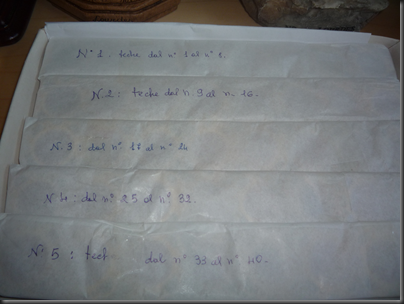 N° 1. teche dal n° 1 al n° 8.
N. 2: teche dal n. 9 al n. 16.
N. 3: dal n° 17 al n° 24
N 4: dal n° 25 al n° 32.
N° 5: tech dal n° 33 al n° 40.